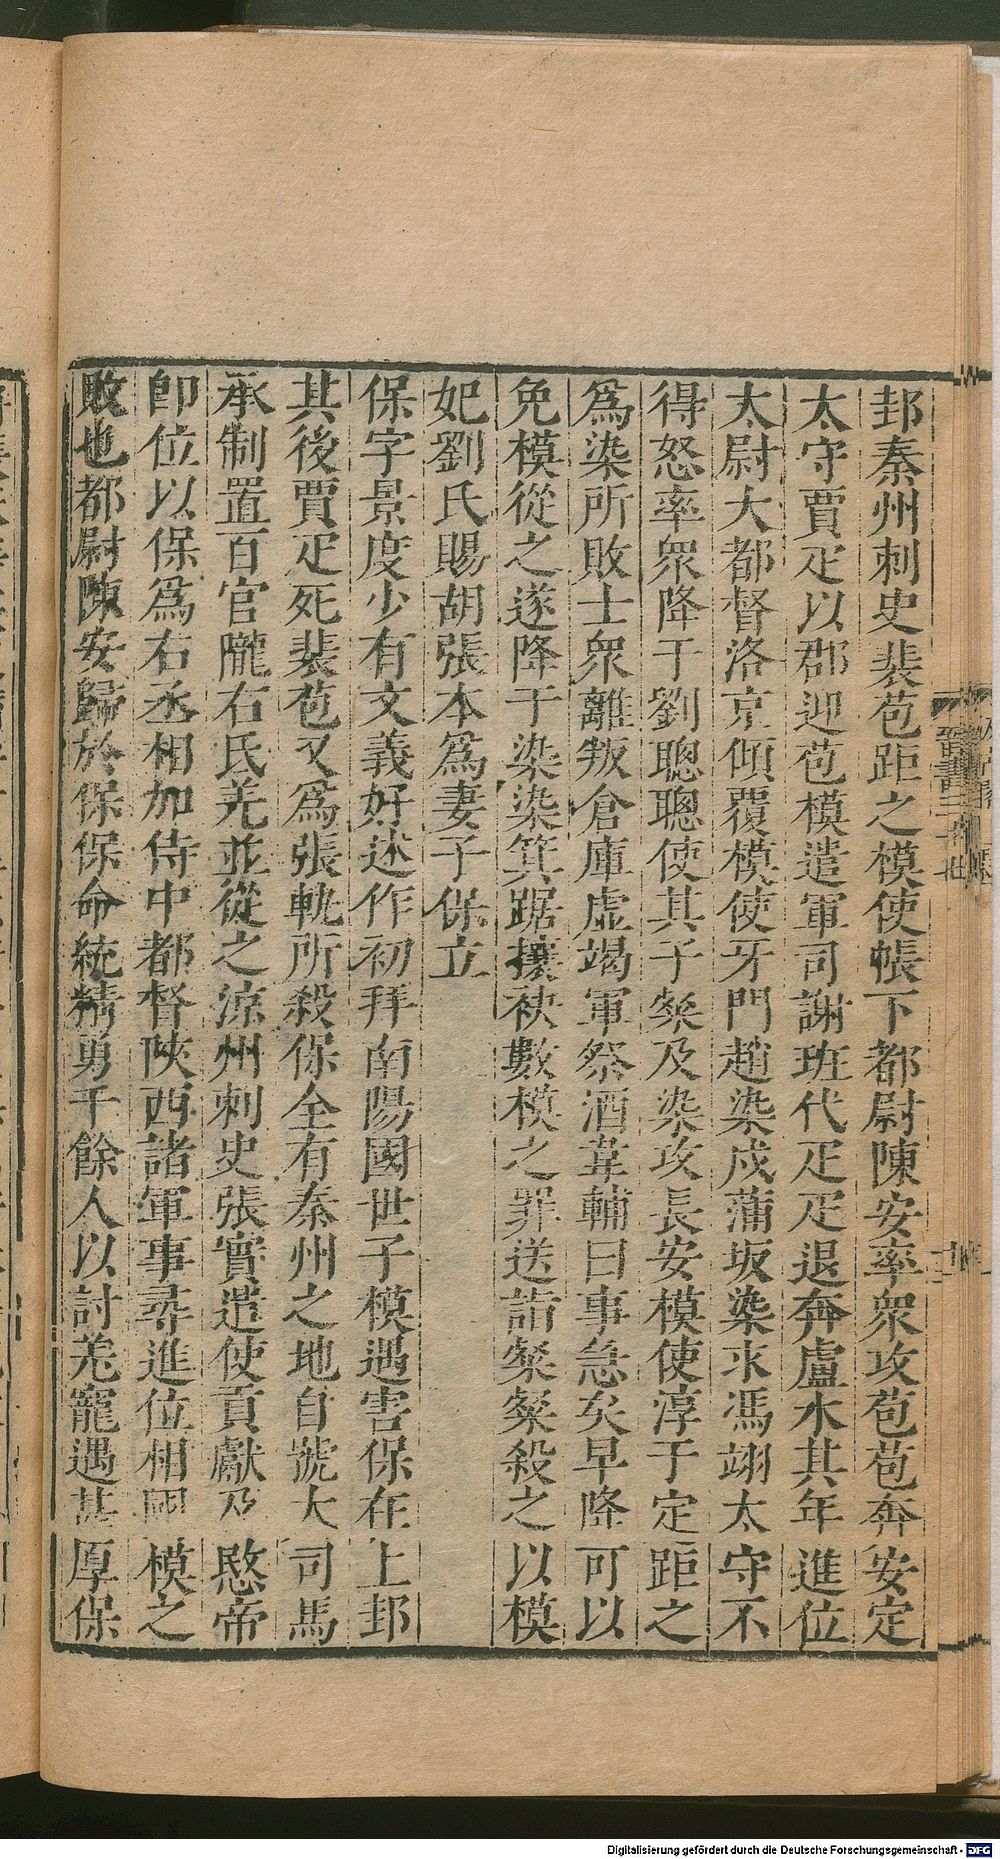 邽秦州刺史裴苞距之模使帳下都尉陳安率衆攻苞苞奔安定
太守賈疋以郡迎苞模遣軍司謝班代疋疋退奔盧水其年進位
太尉大都督洛京傾覆模使牙門趙染戍蒲坂染求馮翊太守不
得怒率衆降于劉聰聰使其子粲及染攻長安模使淳于定距之
爲染所敗士衆離叛倉庫虛竭軍祭酒韋輔曰事急矣早降可以
免模從之遂降于染染箕踞攘袂數模之罪送詣粲粲殺之以模
妃劉氏賜胡張本爲妻子保立
保字景度少有文義好述作初拜南陽國世子模遇害保在上邽
其後賈疋死裴苞又爲張軌所殺保全有秦州之地自號大司馬
承制置百官隴右氐羌並從之涼州刺史張寔遣使貢獻及愍帝
卽位以保爲右丞相加侍中都督陝西諸軍事尋進位相國模之
敗也都尉陳安歸於保保命統精勇千餘人以討羌寵遇甚厚保
Digitalisierung gefördert durch die Deutsche Forschungsgemeinschaft - DFG